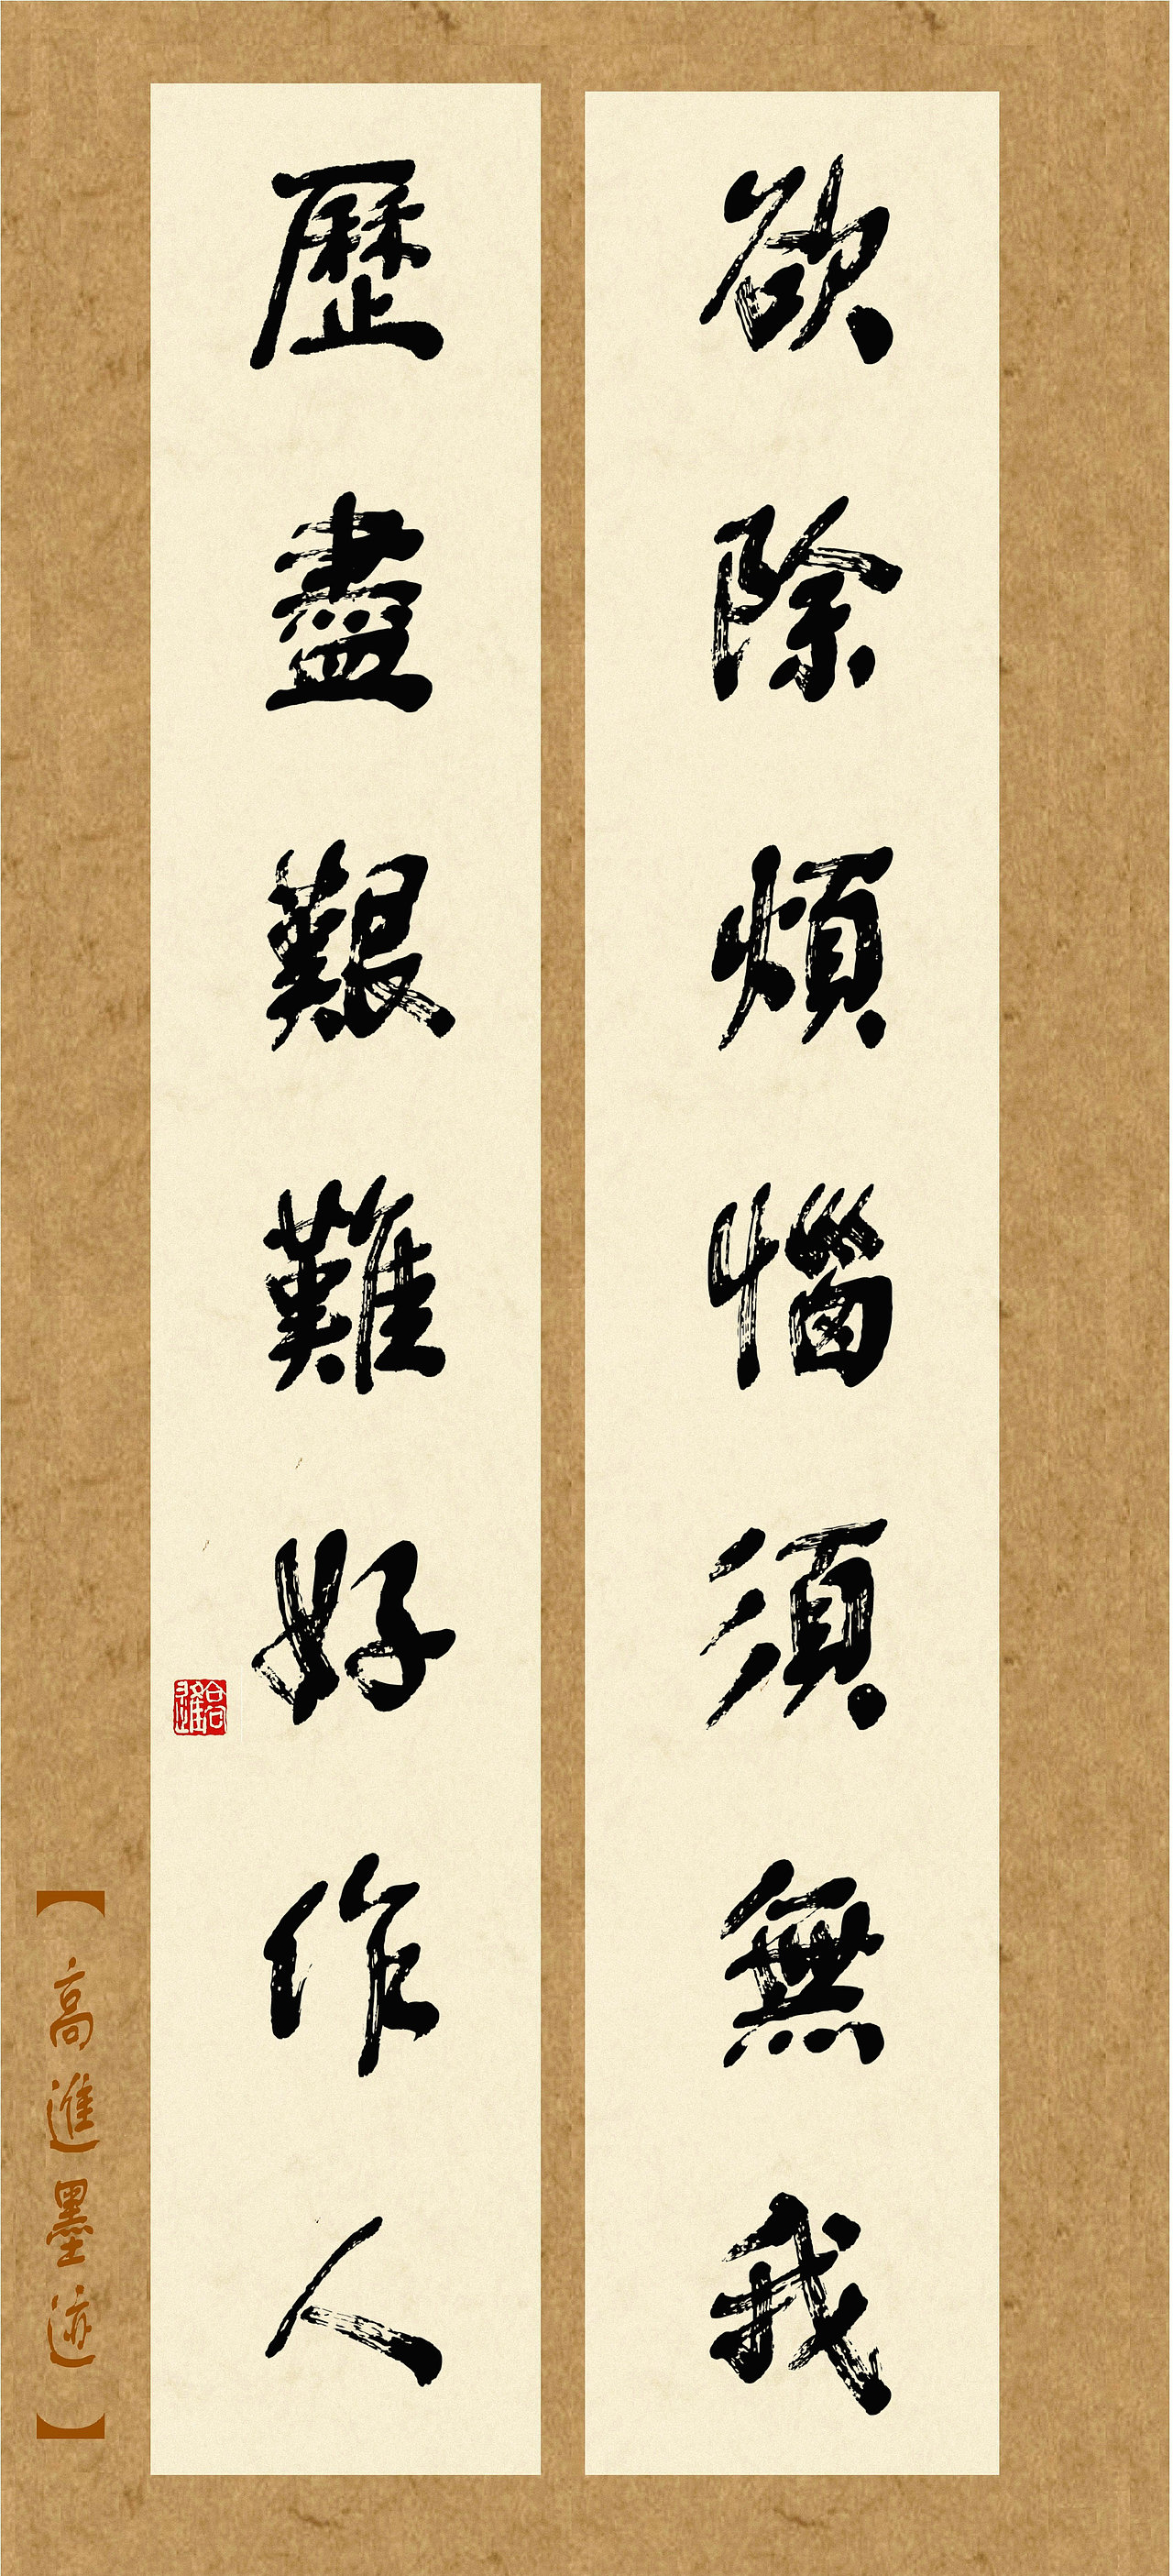 欲除煩惱須無我
歷盡艱難好作人
【高進墨迹】